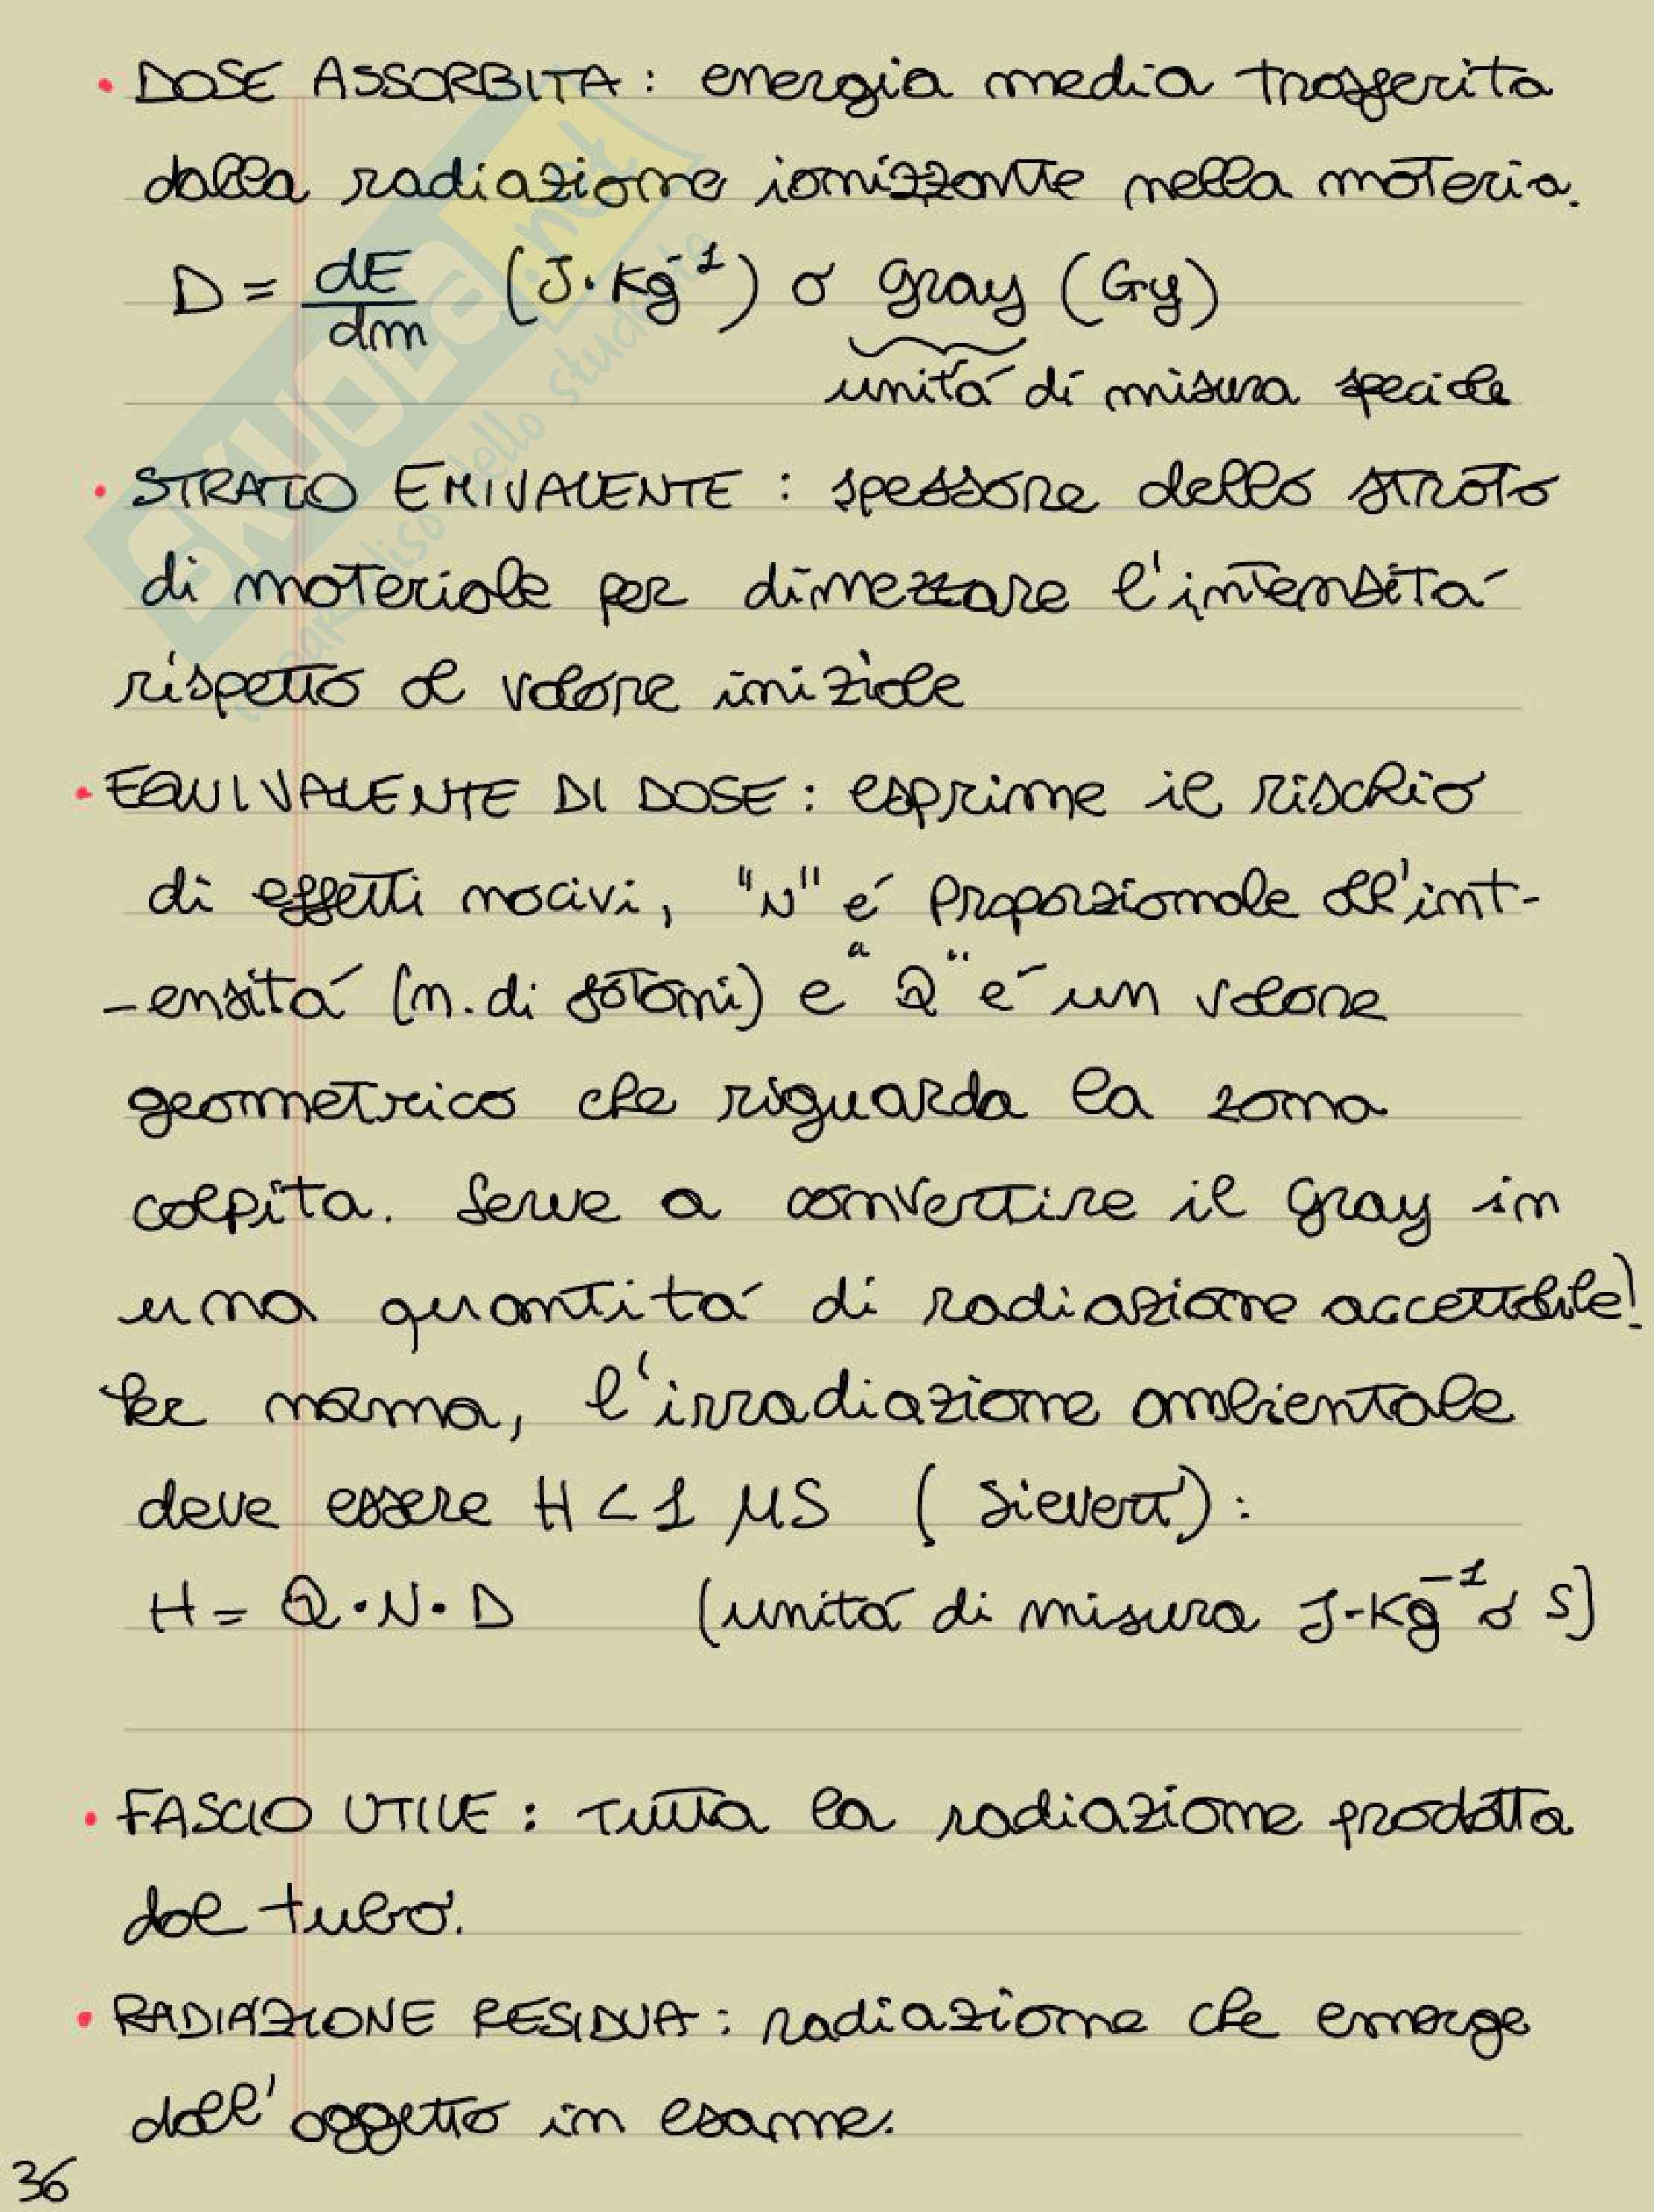 • DOSE ASSORBITA: energia media trasferita
dalla radiazione ionizzante nella materia.
D = dE/dm (J·Kg⁻¹) o gray (Gy)
unitá di misura speciale
• STRATO EMIVALENTE: spessore dello strato
di materiale per dimezzare l'intensitá
rispetto al valore iniziale
• EQUIVALENTE DI DOSE: esprime il rischio
di effetti nocivi, "N" é proporzionale all'int-
-ensitá (n. di fotoni) e "Q" é un valore
geometrico che riguarda la zona
colpita. Serve a convertire il gray in
una quantitá di radiazione accettabile!
Per norma, l'irradiazione ambientale
deve essere H < 1 μS (Sievert):
H = Q·N·D (unitá di misura J·Kg⁻¹ o S)
• FASCIO UTILE: tutta la radiazione prodotta
dal tubo.
• RADIAZIONE RESIDUA: radiazione che emerge
dall'oggetto in esame.
36
SKUOLA.net
il paradiso dello studente